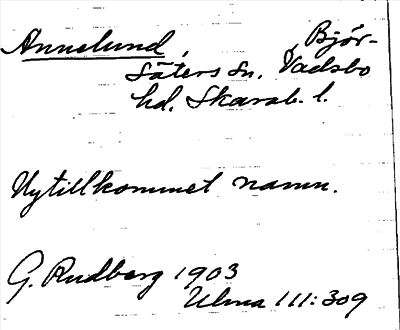 Annelund, Björ-
säters sn, Vadsbo
hd, Skarab. l.
Nytillkommet namn.
G. Rudberg 1903
Ulma 111:309